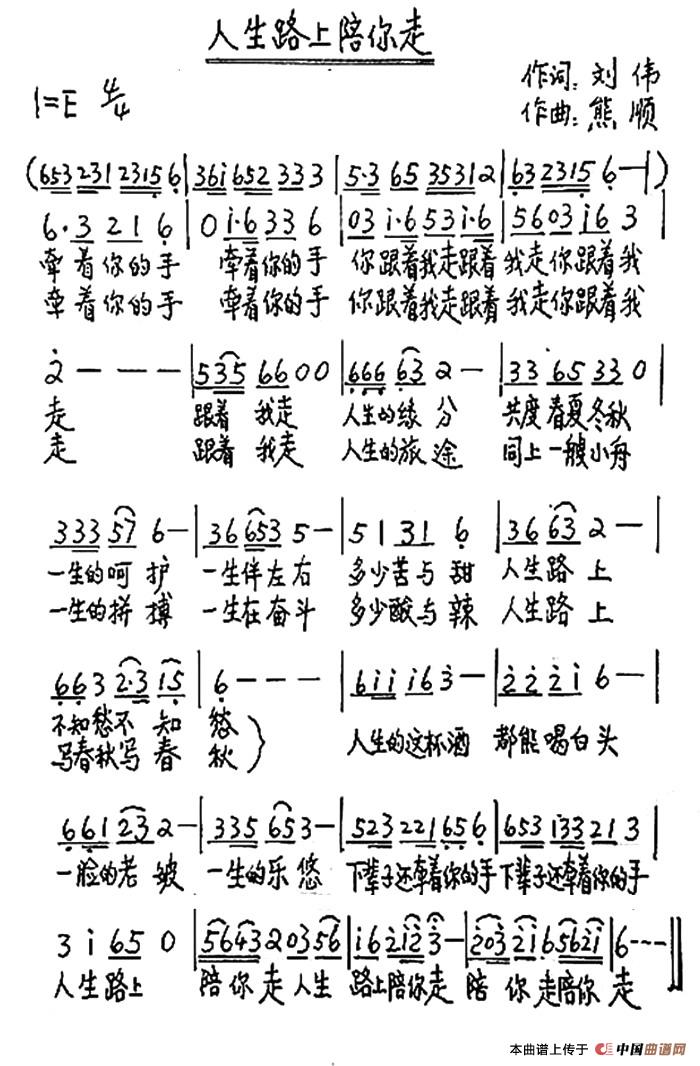 人生路上陪你走
作词:刘伟
1=E 4/4
作曲:熊顺
(653 231 2315 6 | 36i 652 333 | 5·3 65 35312 | 63 2315 6 — | )
6·3 21 6 | 0 i·6 33 6 | 03 i·6 53 i·6 | 56 03 i6 3 |
牵着你的手 牵着你的手 你跟着我走跟着我走你跟着我
牵着你的手 牵着你的手 你跟着我走跟着我走你跟着我
2 — — — | 535 66 0 0 | 666 63 2 — | 33 65 33 0 |
走 跟着我走 人生的缘分 共度春夏冬秋
走 跟着我走 人生的旅途 同上一艘小舟
333 57 6 — | 36 653 5 — | 51 31 6 | 36 63 2 — |
一生的呵护 一生伴左右 多少苦与甜 人生路上
一生的拼搏 一生在奋斗 多少酸与辣 人生路上
663 2·3 15 | 6 — — — | 6iii i6 3 — | 222i 6 — |
不知愁不知愁 人生的这杯酒 都能喝白头
写春秋写春秋}
661 23 2 — | 335 653 — | 523 221 65 6 | 653 i33 21 3 |
一脸的老皱 一生的乐悠 下辈子还牵着你的手 下辈子还牵着你的手
3 i 65 0 | 5643 2 03 56 | i6 2i2 3 — | 203 2i 6 562i | 6 — — — ‖
人生路上 陪你走人生 路上陪你走 陪你走陪你走
本曲谱上传于 中国曲谱网